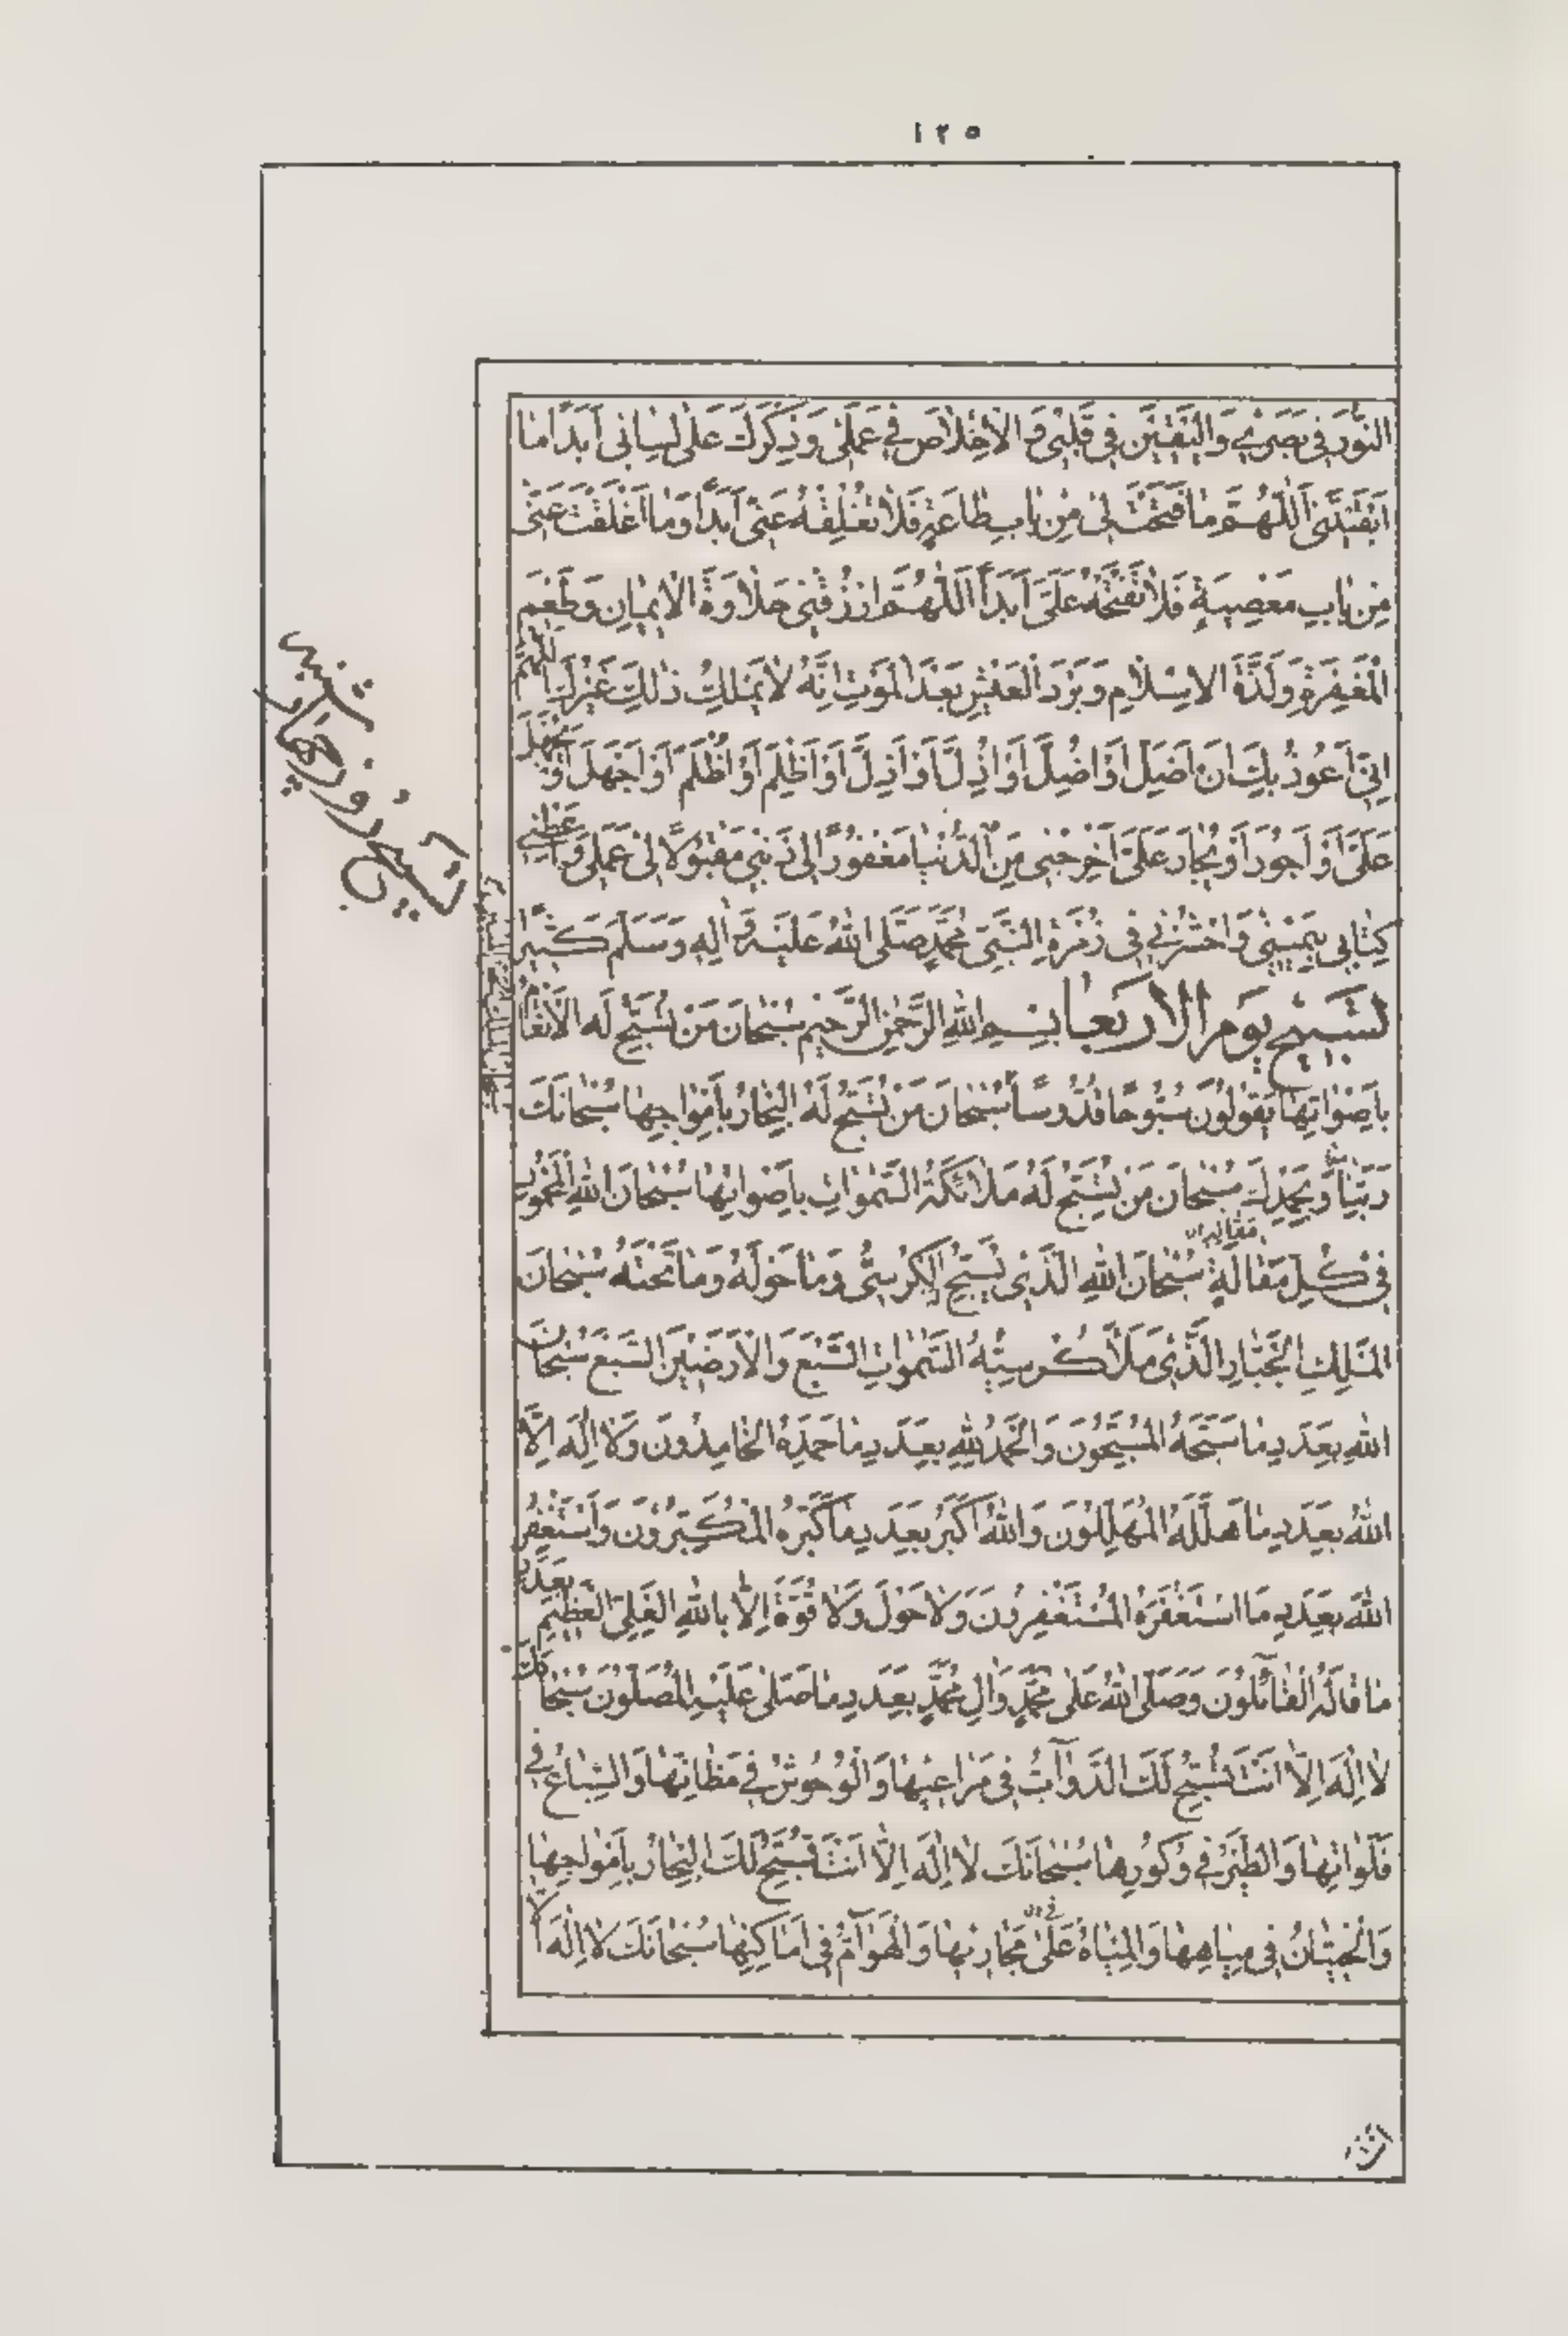 ١٢٥
النُّورَ فِي بَصَرِي وَالْيَقِينَ فِي قَلْبِي وَ الْاِخْلَاصَ فِي عَمَلِي وَذِكْرَكَ عَلٰى لِسَانِي اَبَدًا مَا
اَبْقَيْتَنِي اَللّٰهُمَّ مَا فَتَحْتَ لِي مِنْ بَابِ طَاعَةٍ فَلَا تُغْلِقْهُ عَنِّي اَبَدًا وَمَا اَغْلَقْتَ عَنِّي
مِنْ بَابِ مَعْصِيَةٍ فَلَا تَفْتَحْهُ عَلَيَّ اَبَدًا اَللّٰهُمَّ ارْزُقْنِي حَلَاوَةَ الْاِيمَانِ وَطَعْمَ
الْمَغْفِرَةِ وَلَذَّةَ الْاِسْلَامِ وَبَرْدَ الْعَيْشِ بَعْدَ الْمَوْتِ اِنَّهُ لَا يَمْلِكُ ذٰلِكَ غَيْرُكَ اللّٰهُمَّ
اِنِّي اَعُوذُ بِكَ اَنْ اَضِلَّ اَوْ اُضِلَّ اَوْ اَذِلَّ اَوْ اُذِلَّ اَوْ اَظْلِمَ اَوْ اُظْلَمَ اَوْ اَجْهَلَ اَوْ يُجْهَلَ
عَلَيَّ اَوْ اَجُورَ اَوْ يُجَارَ عَلَيَّ اَخْرِجْنِي مِنَ الدُّنْيَا مَغْفُورًا لِي ذَنْبِي مَقْبُولًا لِي عَمَلِي وَاَعْطِنِي
كِتَابِي بِيَمِينِي وَاحْشُرْنِي فِي زُمْرَةِ النَّبِيِّ مُحَمَّدٍ صَلَّى اللّٰهُ عَلَيْهِ وَ اٰلِهِ وَسَلَّمَ كَثِيرًا
تَسْبِيحُ يَوْمِ الْاَرْبَعَا بِسْمِ اللّٰهِ الرَّحْمٰنِ الرَّحِيمِ سُبْحَانَ مَنْ تُسَبِّحُ لَهُ الْاَنْعَامُ
بِاَصْوَاتِهَا يَقُولُونَ سُبُّوحًا قُدُّوسًا سُبْحَانَ مَنْ تُسَبِّحُ لَهُ الْبِحَارُ بِاَمْوَاجِهَا سُبْحَانَكَ
رَبَّنَا وَبِحَمْدِكَ سُبْحَانَ مَنْ تُسَبِّحُ لَهُ مَلَائِكَةُ السَّمٰوَاتِ بِاَصْوَاتِهَا سُبْحَانَ اللّٰهِ الْمَحْمُودِ
فِي كُلِّ مَقَالَةٍ سُبْحَانَ اللّٰهِ الَّذِي يُسَبِّحُ الْكُرْسِيُّ وَمَا حَوْلَهُ وَمَا تَحْتَهُ سُبْحَانَ
الْمَلِكِ الْجَبَّارِ الَّذِي مَلَاَ كُرْسِيُّهُ السَّمٰوَاتِ السَّبْعَ وَالْاَرَضِينَ السَّبْعَ سُبْحَانَ
اللّٰهِ بِعَدَدِ مَا سَبَّحَهُ الْمُسَبِّحُونَ وَالْحَمْدُ لِلّٰهِ بِعَدَدِ مَا حَمِدَهُ الْحَامِدُونَ وَلَا اِلٰهَ اِلَّا
اللّٰهُ بِعَدَدِ مَا هَلَّلَهُ الْمُهَلِّلُونَ وَاللّٰهُ اَكْبَرُ بِعَدَدِ مَا كَبَّرَهُ الْمُكَبِّرُونَ وَاَسْتَغْفِرُ
اللّٰهَ بِعَدَدِ مَا اسْتَغْفَرَهُ الْمُسْتَغْفِرُونَ وَلَا حَوْلَ وَلَا قُوَّةَ اِلَّا بِاللّٰهِ الْعَلِيِّ الْعَظِيمِ بِعَدَدِ
مَا قَالَهُ الْقَائِلُونَ وَصَلَّى اللّٰهُ عَلٰى مُحَمَّدٍ وَاٰلِ مُحَمَّدٍ بِعَدَدِ مَا صَلّٰى عَلَيْهِ الْمُصَلُّونَ سُبْحَانَكَ
لَا اِلٰهَ اِلَّا اَنْتَ تُسَبِّحُ لَكَ الدَّوَآبُّ فِي مَرَاعِيهَا وَالْوُحُوشُ فِي مَظَانِّهَا وَالسِّبَاعُ فِي
فَلَوَاتِهَا وَالطَّيْرُ فِي وُكُورِهَا سُبْحَانَكَ لَا اِلٰهَ اِلَّا اَنْتَ تُسَبِّحُ لَكَ الْبِحَارُ بِاَمْوَاجِهَا
وَالْحِيتَانُ فِي مِيَاهِهَا وَالْمِيَاهُ عَلٰى مَجَارِيهَا وَالْهَوَآمُّ فِي اَمَاكِنِهَا سُبْحَانَكَ لَا اِلٰهَ اِلَّا
اَنْتَ